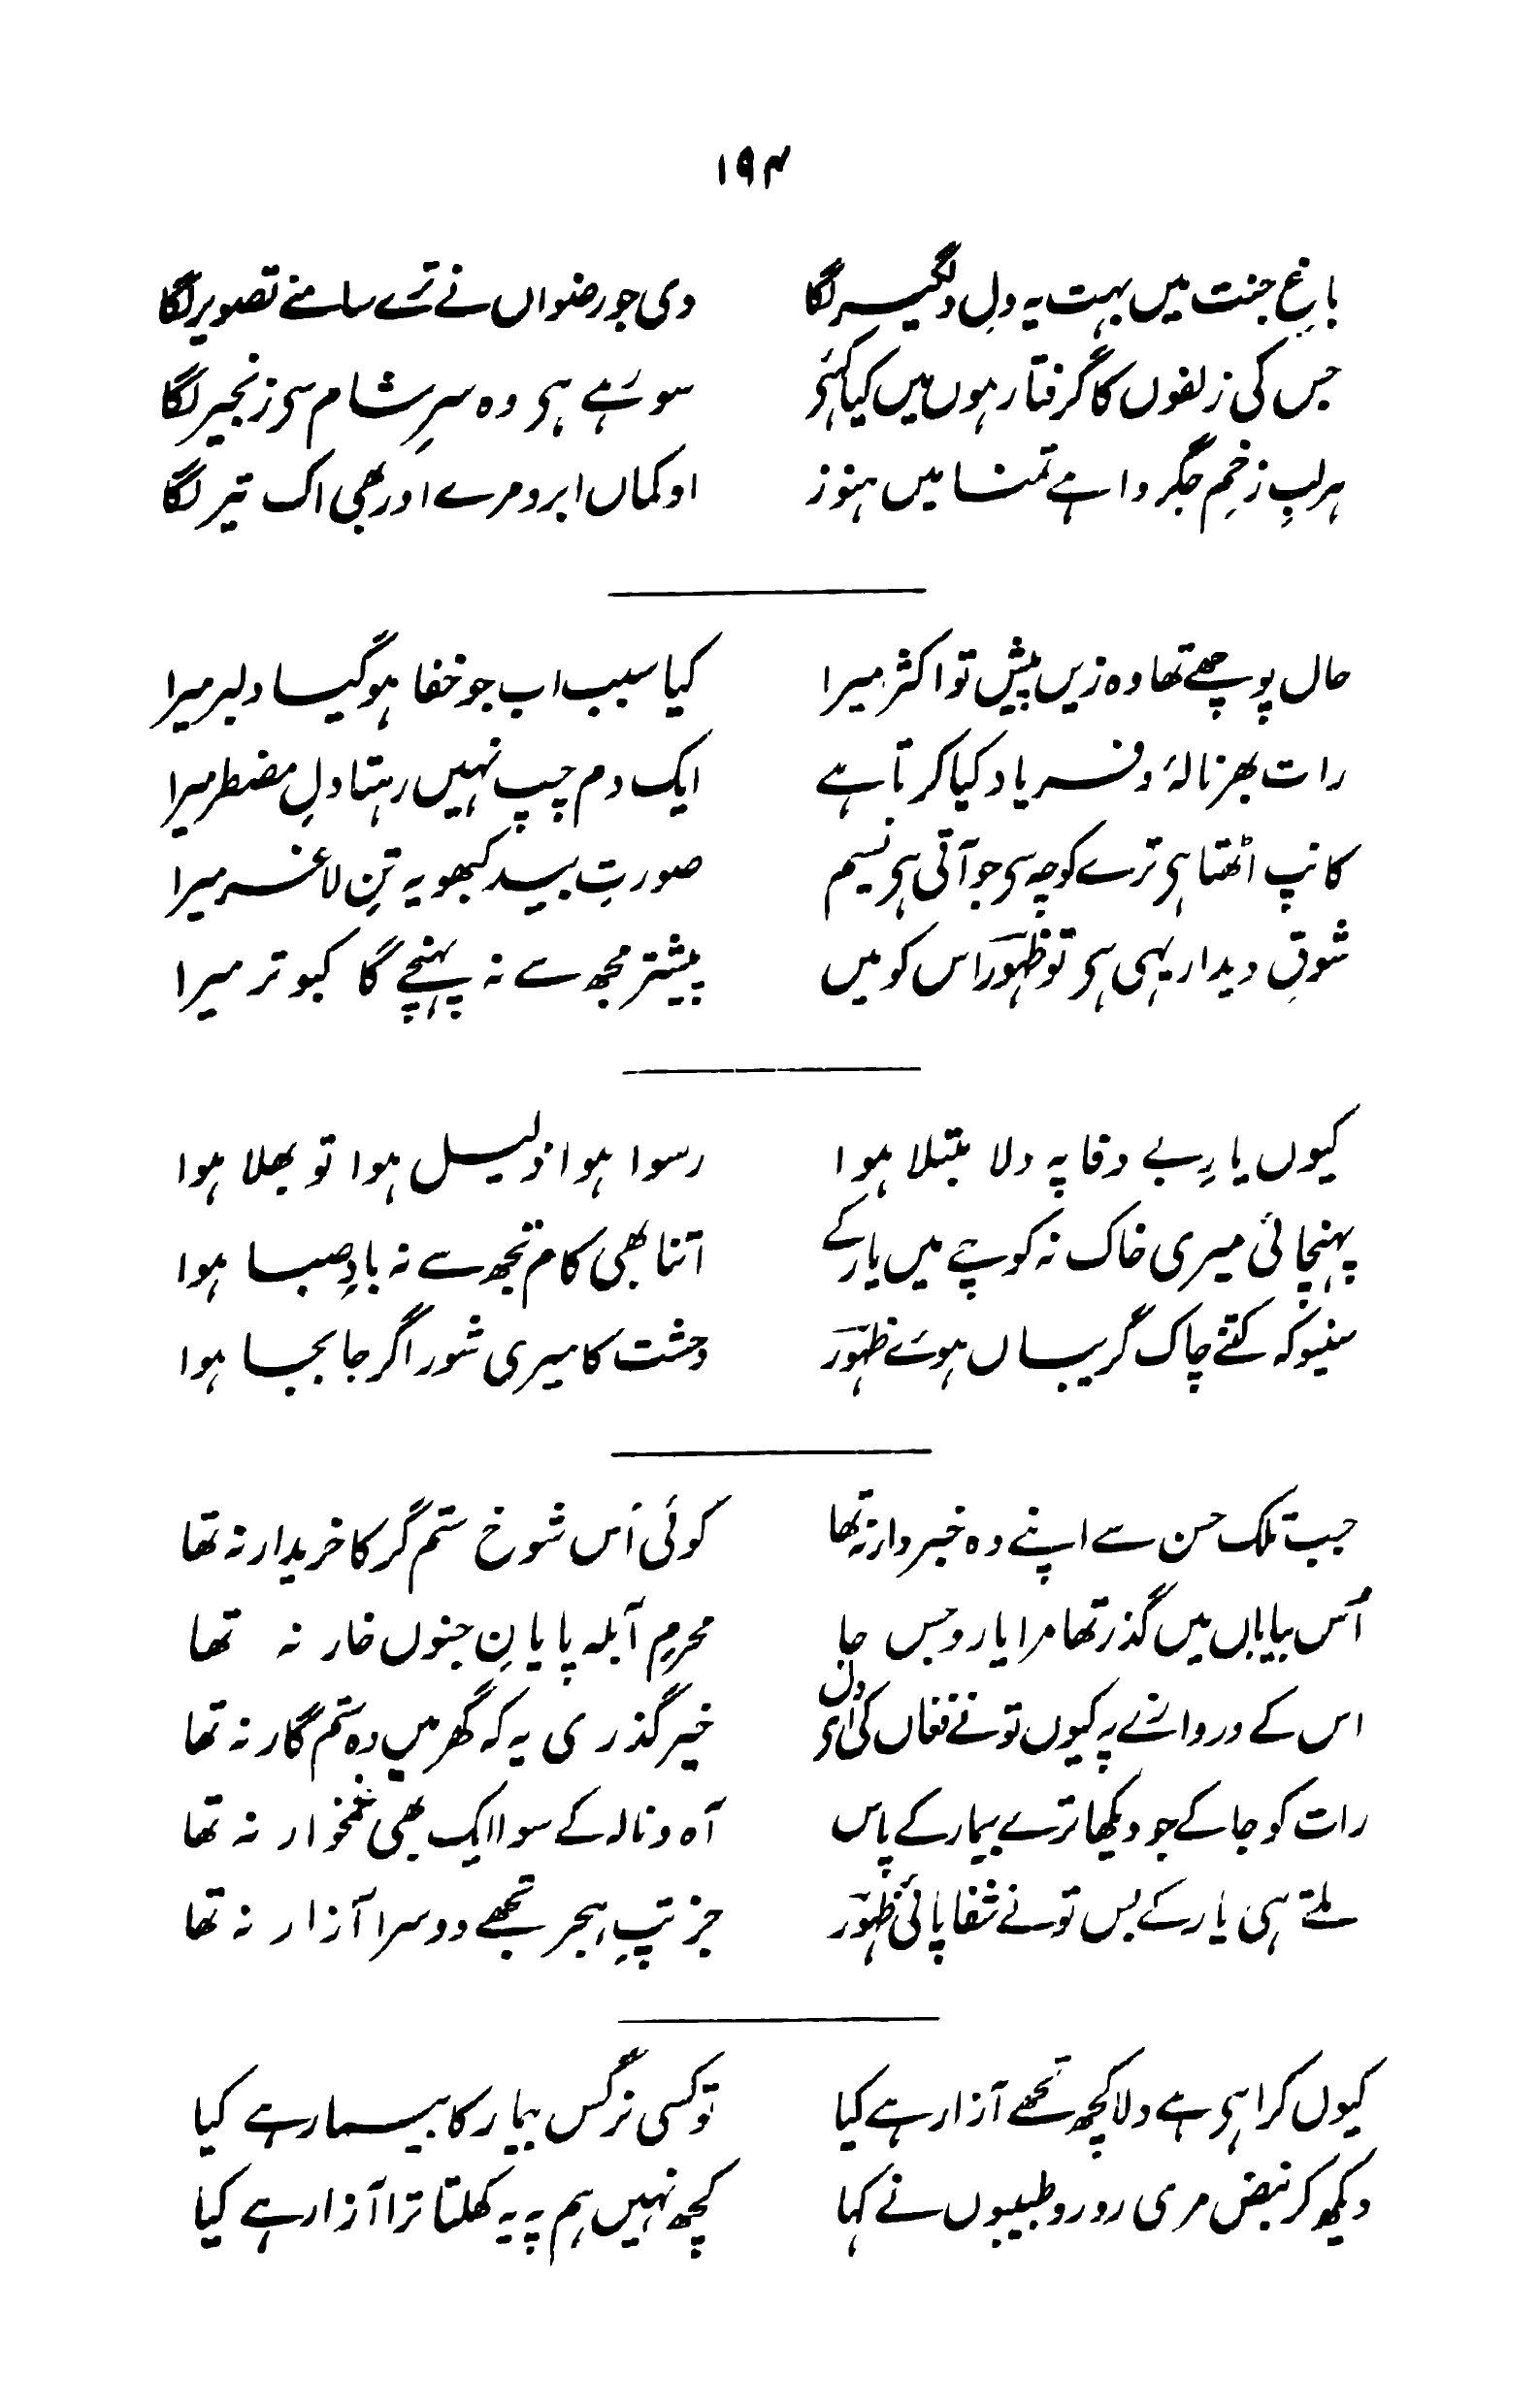 ۱۹۴
باغِ جنت میں بہت یہ دلِ دلگیر لگا دی جو رضواں نے ترے سامنے تصویر لگا
جس کی زلفوں کا گرفتار ہوں میں کیا کہئے سو رہے ہی وہ سرِ شام سی زنجیر لگا
ہر لبِ زخمِ جگر وا ہے تمنا میں ہنوز او کماں ابرو مرے اور بھی اک تیر لگا
حال پوچھے تھا وہ زیں بیش تو اکثر میرا کیا سبب اب جو خفا ہو گیا دلبر میرا
رات بھر نالۂ و فریاد کیا کرتا ہے ایک دم چپ نہیں رہتا دلِ مضطر میرا
کانپ اٹھتا ہی ترے کوچہ سی جو آتی ہی نسیم صورتِ بید کبھو یہ تنِ لاغر میرا
شوقِ دیدار یہی ہی تو ظہورؔ اس کو میں پیشتر مجھ سے نہ پہنچے گا کبوتر میرا
کیوں یارِ بے وفا پہ دلا مبتلا ہوا رسوا ہوا ذلیل ہوا تو بھلا ہوا
پہنچائی میری خاک نہ کوچے میں یار کے اتنا بھی کام تجھ سے نہ بادِ صبا ہوا
سنیو کہ کتنے چاک گریباں ہوئے ظہورؔ وحشت کا میری شور اگر جا بجا ہوا
جب تلک حسن سے اپنے وہ خبردار نہ تھا کوئی اُس شوخ ستم گر کا خریدار نہ تھا
اُس بیاباں میں گذر تھا مرا یارو جس جا محرمِ آبلہ پایانِ جنوں خار نہ تھا
اس کے دروازے پہ کیوں تو نے فغاں کی اے دل خیر گذری یہ کہ گھر میں وہ ستم گار نہ تھا
رات کو جا کے جو دیکھا ترے بیمار کے پاس آہ و نالہ کے سوا ایک بھی غمخوار نہ تھا
ملتے ہی یار کے بس تو نے شفا پائی ظہورؔ جز تپِ ہجر تجھے دوسرا آزار نہ تھا
کیوں کراہی ہے دلا کچھ تجھے آزار ہے کیا تو کسی نرگس بیمار کا بیمار ہے کیا
دیکھ کر نبض مری رو رو طبیبوں نے کہا کچھ نہیں ہم پہ یہ کھلتا ترا آزار ہے کیا